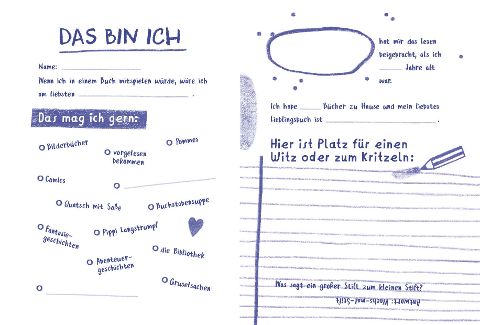 DAS BIN ICH
Name:
Wenn ich in einem Buch mitspielen würde, wäre ich
am liebsten
Das mag ich gern:
Bilderbücher
vorgelesen
bekommen
Pommes
Comics
Quatsch mit Soße
Buchstabensuppe
Fantasie-
geschichten
Pippi Langstrumpf
die Bibliothek
Abenteuer-
geschichten
Gruselsachen
hat mir das Lesen
beigebracht, als ich
Jahre alt
war.
Ich habe Bücher zu Hause und mein liebstes
Lieblingsbuch ist .
Hier ist Platz für einen
Witz oder zum Kritzeln:
Was sagt ein großer Stift zum kleinen Stift?
Antwort: Wachs-mal-Stift.